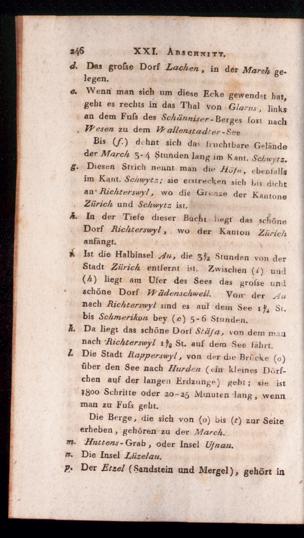 246 XXI. Abschnitt.
d. Das grosse Dorf Lachen, in der March ge-
legen.
e. Wenn man sich um diese Ecke gewendet hat,
geht es rechts in das Thal von Glarus, links
an dem Fuſs des Schänniser-Berges fort nach
Wesen zu dem Wallenstadter-See
Bis (f.) dehnt sich das fruchtbare Gelände
der March 3-4 Stunden lang im Kant. Schwytz.
g. Diesen Strich nennt man die Höfe, ebenfalls
im Kant. Schwytz; sie erstrecken sich bis dicht
an Richterswyl, wo die Grenze der Kantone
Zürich und Schwytz ist.
h. In der Tiefe dieser Bucht liegt das schöne
Dorf Richterswyl, wo der Kanton Zürich
anfängt.
Ist die Halbinsel Au, die 3½ Stunden von der
Stadt Zürich entfernt ist. Zwischen (i) und
(h) liegt am Ufer des Sees das groſse und
schöne Dorf Wädenschweil. Von der Au
nach Richterswyl und es auf dem See 1¼ St.
bis Schmerikon bey (c) 5-6 Stunden.
k. Da liegt das schöne Dorf Stäfa, von dem man
nach Richterswyl 1¼ St. auf dem See fährt.
l. Die Stadt Rapperswyl, von der die Brücke (o)
über den See nach Hurden (ein kleines Dörf-
chen auf der langen Erdzunge) geht; sie ist
1800 Schritte oder 20-25 Minuten lang, wenn
man zu Fuſs geht.
Die Berge, die sich von (o) bis (c) zur Seite
erheben, gehören zu der March.
m. Huttens-Grab, oder Insel Ufnau.
n. Die Insel Lüzelau.
p. Der Etzel (Sandstein und Mergel), gehört in